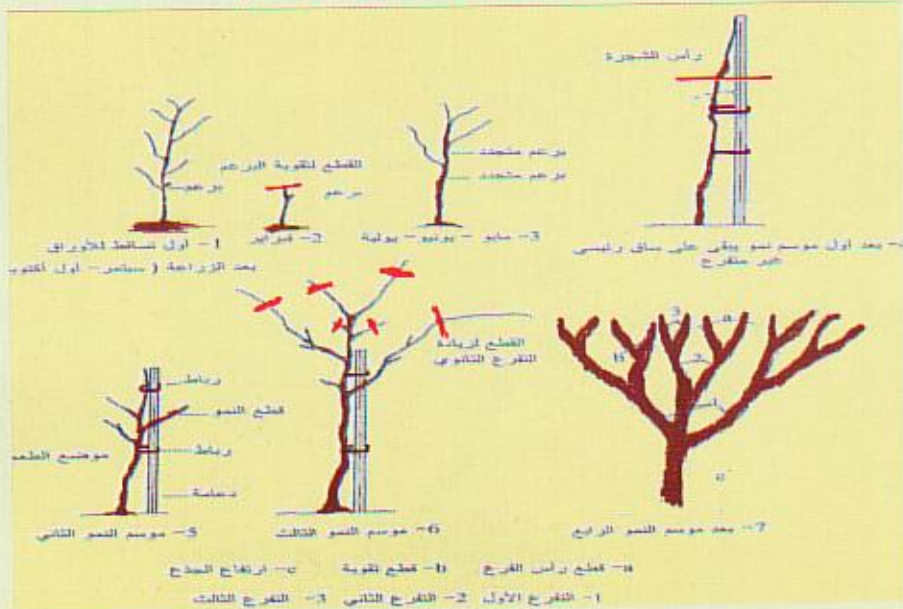 رأس الشجرة
القطع لتقوية البرعم
برعم
برعم
برعم متجدد
برعم متجدد
1- أول تساقط للأوراق
بعد الزراعة ( سبتمبر- أول أكتوبر
2- فبراير
3- مايو - يونيو - يولية
- بعد أول موسم نمو يبقى على ساق رئيسى
غير متفرع
القطع لزيادة
التفرع الثانوي
رباط
قطع النمو
رباط
موضع الطعم
دعامة
3
a
b
2
1
c
5- موسم النمو الثاني
6- موسم النمو الثالث
7- بعد موسم النمو الرابع
a- قطع رأس الفرع b- قطع تقوية c- ارتفاع الجذع
1- التفرع الأول 2- التفرع الثاني 3- التفرع الثالث